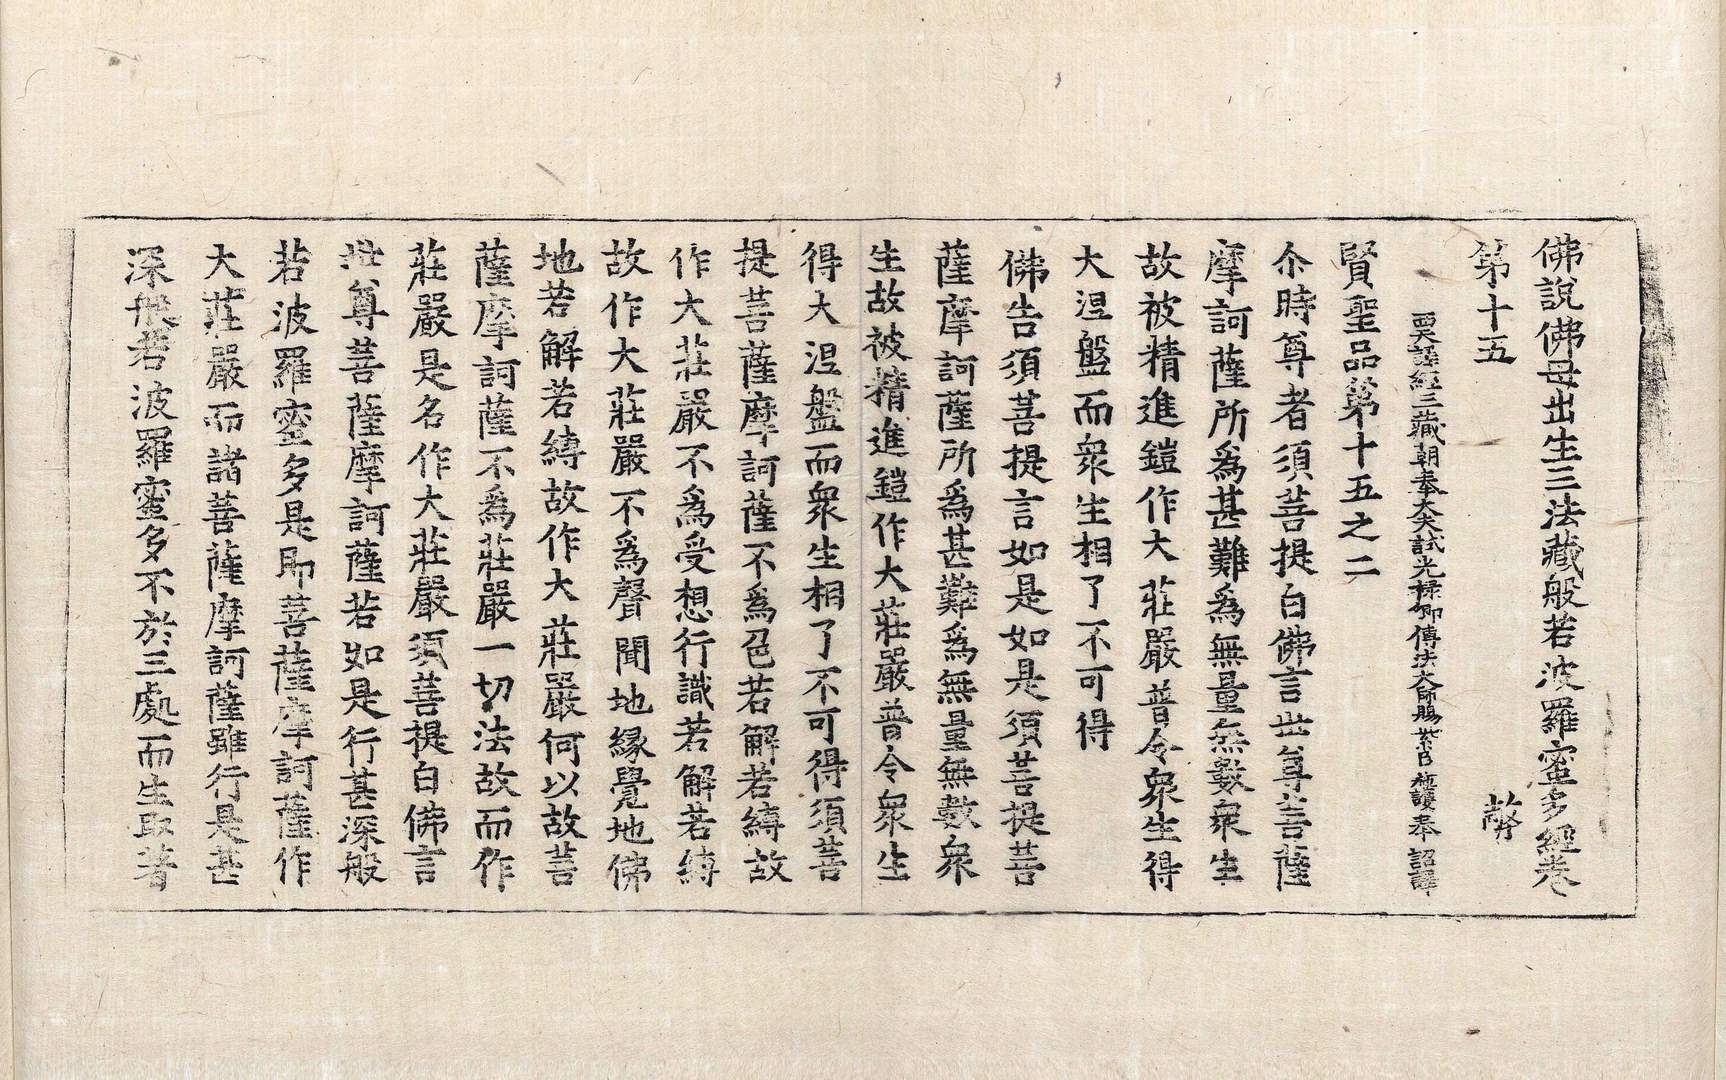 佛說佛母出生三法藏般若波羅蜜多經卷
第十五
西天譯經三藏朝奉大夫試光祿卿傳法大師賜紫臣 施護奉 詔譯
賢聖品第十五之二
尒時尊者須菩提白佛言世尊菩薩
摩訶薩所爲甚難爲無量無數衆生
故被精進鎧作大莊嚴普令衆生得
大涅盤而衆生相了不可得
佛告須菩提言如是如是須菩提菩
薩摩訶薩所爲甚難爲無量無數衆
生故被精進鎧作大莊嚴普令衆生
得大涅盤而衆生相了不可得須菩
提菩薩摩訶薩不爲色若解若縛故
作大莊嚴不爲受想行識若解若縛
故作大莊嚴不爲聲聞地緣覺地佛
地若解若縛故作大莊嚴何以故菩
薩摩訶薩不爲莊嚴一切法故而作
莊嚴是名作大莊嚴須菩提白佛言
世尊菩薩摩訶薩若如是行甚深般
若波羅蜜多是即菩薩摩訶薩作
大莊嚴而諸菩薩摩訶薩雖行是甚
深般若波羅蜜多不於三處而生取著